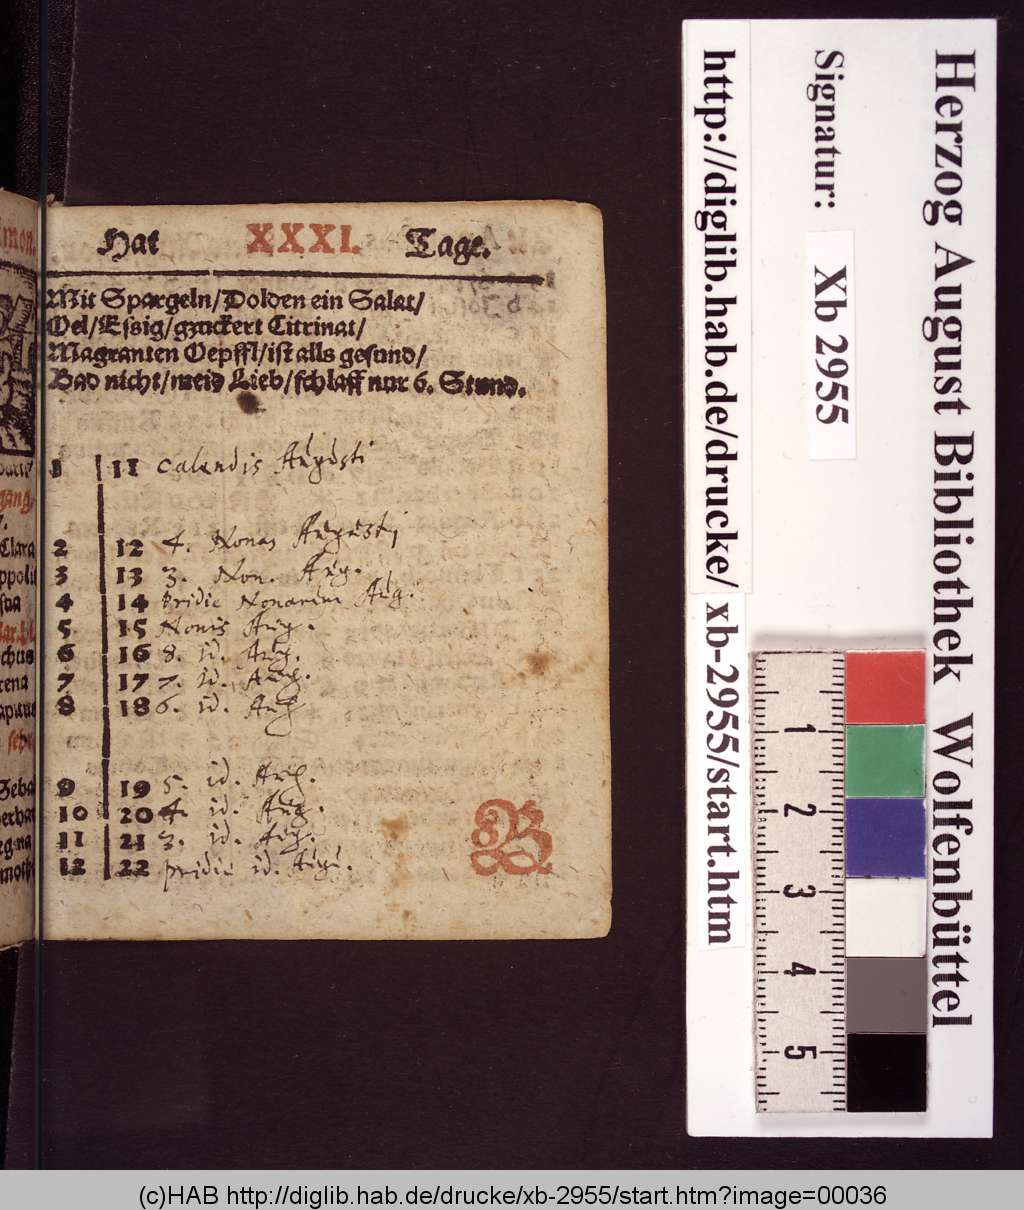 Hat XXXI. Tage.
Mit Spargeln/Dolden ein Salat/
Oel/Essig/gzuckert Citrinat/
Magranten Oepffl/ist alls gesund/
Bad nicht/meid Lieb/schlaff nur 6. Stund.
1 11 Calendis Augusti
2 12 4. Nonas Augusti
3 13 3. Non. Aug.
4 14 Pridie Nonarum Aug.
5 15 Nonis Aug.
6 16 8. id. Aug.
7 17 7. id. Aug.
8 18 6. id. Aug
9 19 5. id. Aug.
10 20 4. id. Aug.
11 21 3. id. Aug.
12 22 pridie id. Aug.
B
imon.
gang.
Clara
ppolit
chus
rena
schei
Seba
erhar
egina
moth
http://diglib.hab.de/drucke/xb-2955/start.htm
Signatur: Xb 2955
Herzog August Bibliothek Wolfenbüttel
1
2
3
4
5
(c)HAB http://diglib.hab.de/drucke/xb-2955/start.htm?image=00036